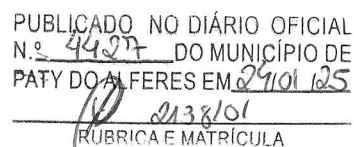 PUBLICADO NO DIÁRIO OFICIAL
N.º 4427 DO MUNICÍPIO DE
PATY DO ALFERES EM 29/01/25
2138/01
RUBRICA E MATRÍCULA